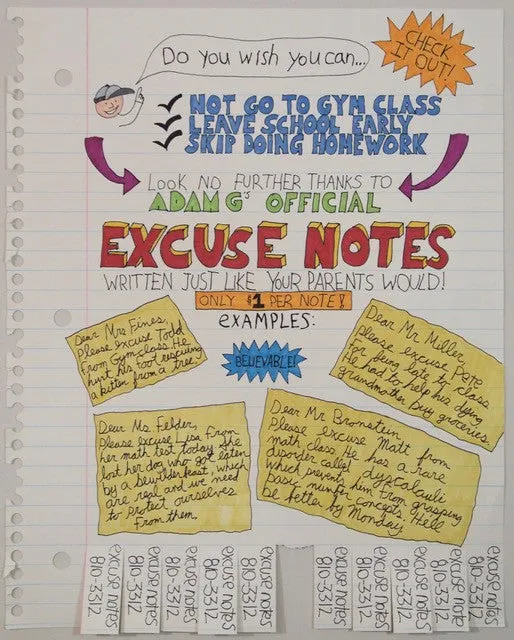 Do you wish you can...
CHECK
IT OUT!
NOT GO TO GYM CLASS
LEAVE SCHOOL EARLY
SKIP DOING HOMEWORK
LOOK NO FURTHER THANKS TO
ADAM G'S OFFICIAL
EXCUSE NOTES
WRITTEN JUST LIKE YOUR PARENTS WOULD!
ONLY $1 PER NOTE!
EXAMPLES:
BELIEVABLE!
Dear Mrs Fines,
Please excuse Todd
From Gym class. He
hurt his foot rescuing
a kitten from a tree.
Dear Mr Miller,
please excuse Pete
For being late to class
He had to help his dying
grandmother buy groceries.
Dear Ms. Felder,
Please excuse Lisa From
her math test today. She
lost her dog who got eaten
by a bewilderbeast, which
are real and we need
to protect ourselves
from them.
Dear Mr Bronstein,
Please excuse Matt from
math class. He has a rare
disorder called
which prevents him from grasping
basic number concepts. Hell
be better by Monday
excuse notes
810-3312
excuse notes
810-3312
excuse notes
810-3312
excuse notes
810-3312
excuse notes
810-3312
excuse notes
810-3312
excuse notes
810-3312
excuse notes
810-3312
excuse notes
810-3312
excuse notes
810-3312